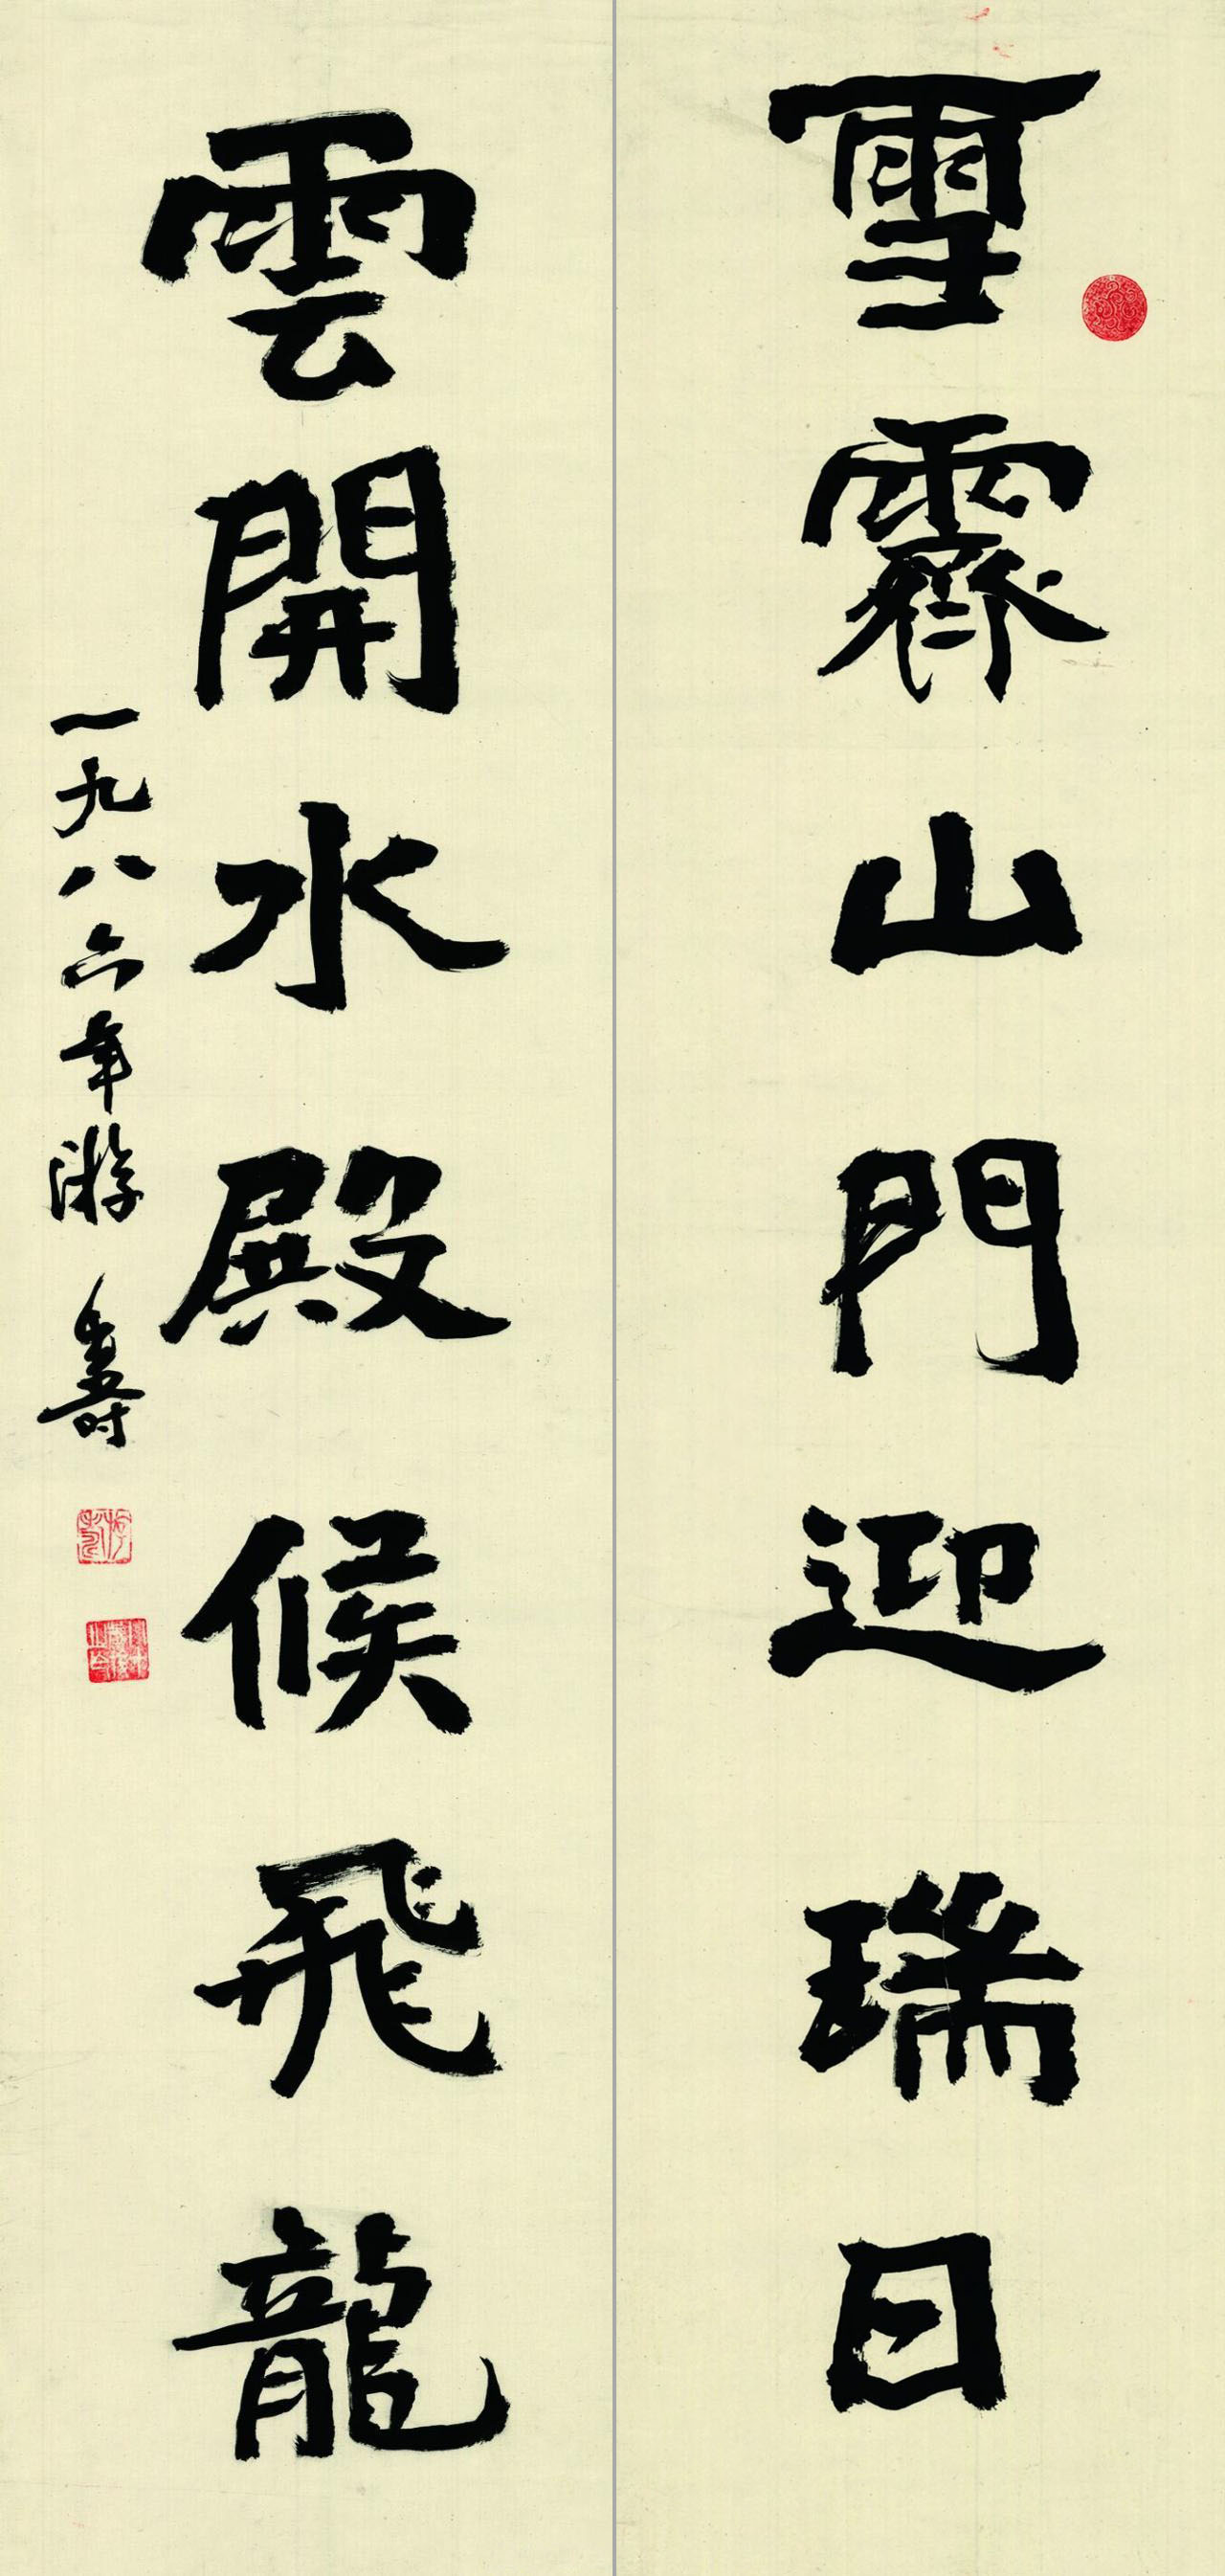 雪霽山門迎瑞日
雲開水殿候飛龍
一九八六年游壽